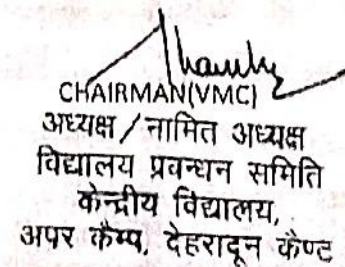 CHAIRMAN(VMC)
अध्यक्ष / नामित अध्यक्ष
विद्यालय प्रवन्धन समिति
केन्द्रीय विद्यालय,
अपर कैम्प, देहरादून कैण्ट